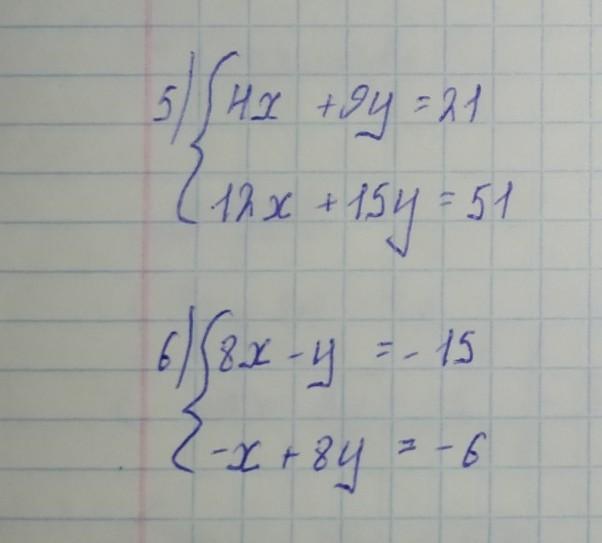 5) { 4x + 9y = 21
12x + 15y = 51
6) { 8x - y = - 15
-x + 8y = -6